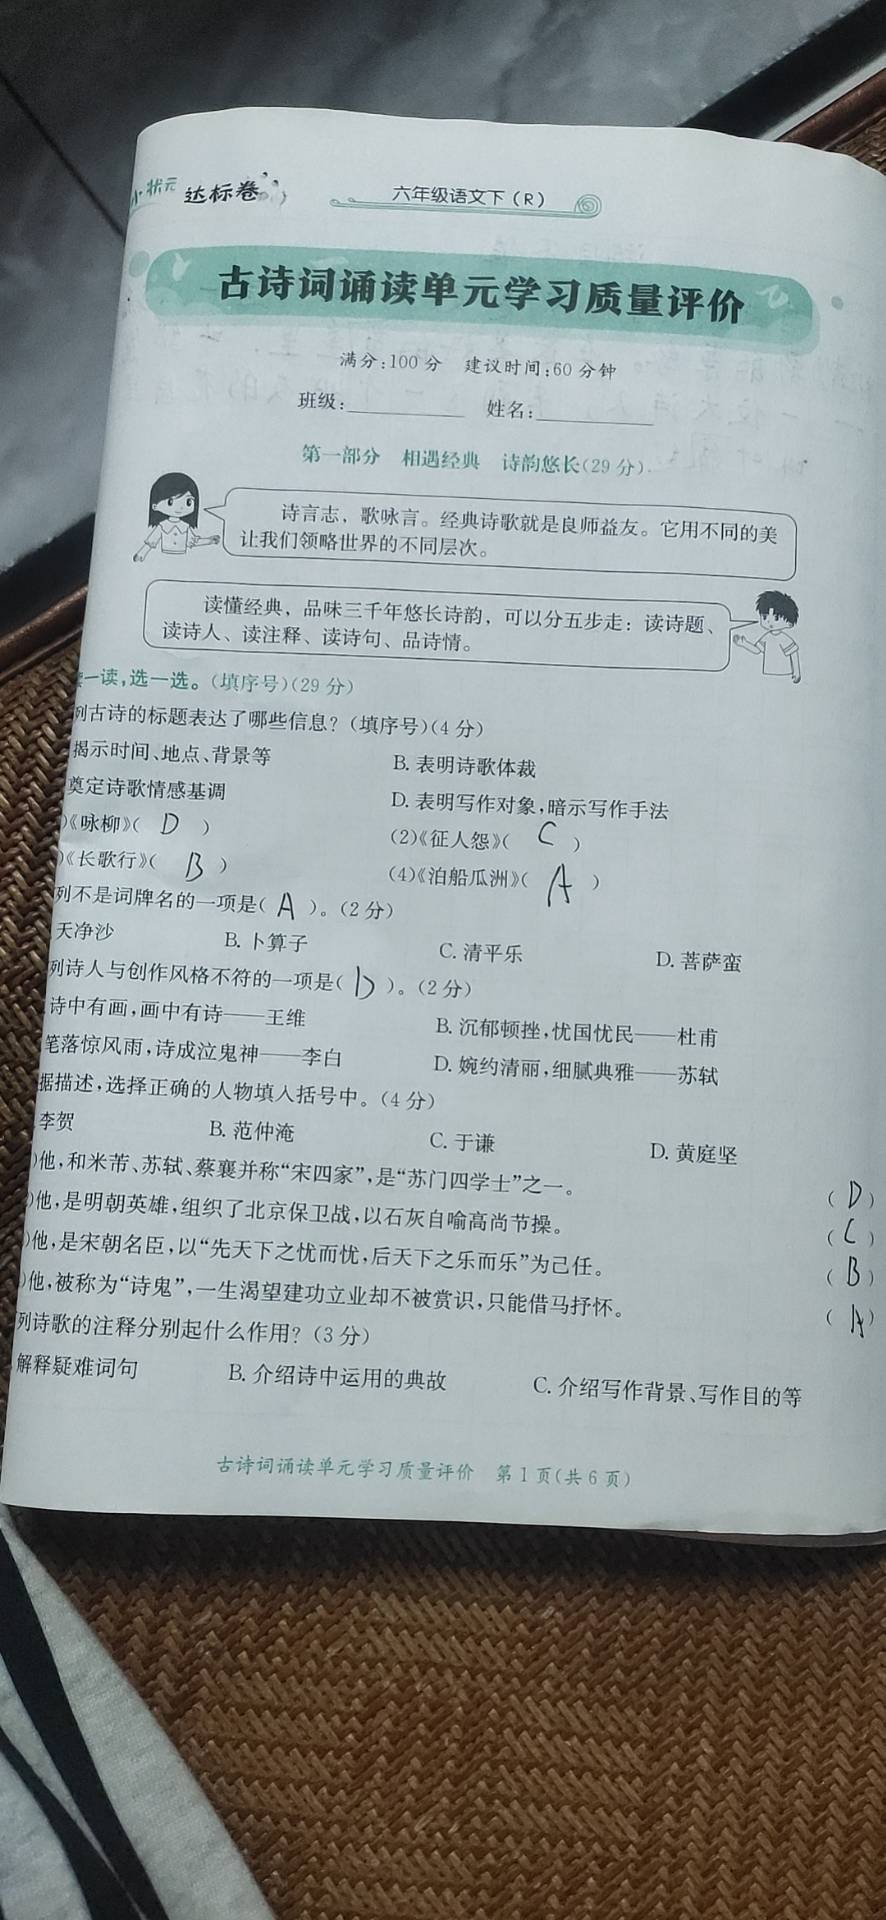 状元 达标卷 六年级语文下(R)
古诗词诵读单元学习质量评价
满分:100分 建议时间:60分钟
班级: 姓名:
第一部分 相遇经典 诗韵悠长(29分)
诗言志，歌咏言。经典诗歌就是良师益友。它用不同的美
让我们领略世界的不同层次。
读懂经典，品味三千年悠长诗韵，可以分五步走：读诗题、
读诗人、读注释、读诗句、品诗情。
一读,选一选。(填序号)(29分)
列古诗的标题表达了哪些信息？(填序号)(4分)
揭示时间、地点、背景等 B. 表明诗歌体裁
奠定诗歌情感基调 D. 表明写作对象,暗示写作手法
)《咏柳》( D ) (2)《征人怨》( C )
)《长歌行》( B ) (4)《泊船瓜洲》( A )
列不是词牌名的一项是( A )。(2分)
天净沙 B. 卜算子 C. 清平乐 D. 菩萨蛮
列诗人与创作风格不符的一项是( D )。(2分)
诗中有画,画中有诗——王维 B. 沉郁顿挫,忧国忧民——杜甫
笔落惊风雨,诗成泣鬼神——李白 D. 婉约清丽,细腻典雅——苏轼
据描述,选择正确的人物填入括号中。(4分)
李贺 B. 范仲淹 C. 于谦 D. 黄庭坚
)他,和米芾、苏轼、蔡襄并称“宋四家”,是“苏门四学士”之一。 ( D )
)他,是明朝英雄,组织了北京保卫战,以石灰自喻高尚节操。 ( C )
)他,是宋朝名臣,以“先天下之忧而忧,后天下之乐而乐”为己任。 ( B )
)他,被称为“诗鬼”,一生渴望建功立业却不被赏识,只能借马抒怀。 ( A )
列诗歌的注释分别起什么作用？(3分)
解释疑难词句 B. 介绍诗中运用的典故 C. 介绍写作背景、写作目的等
古诗词诵读单元学习质量评价 第1页(共6页)